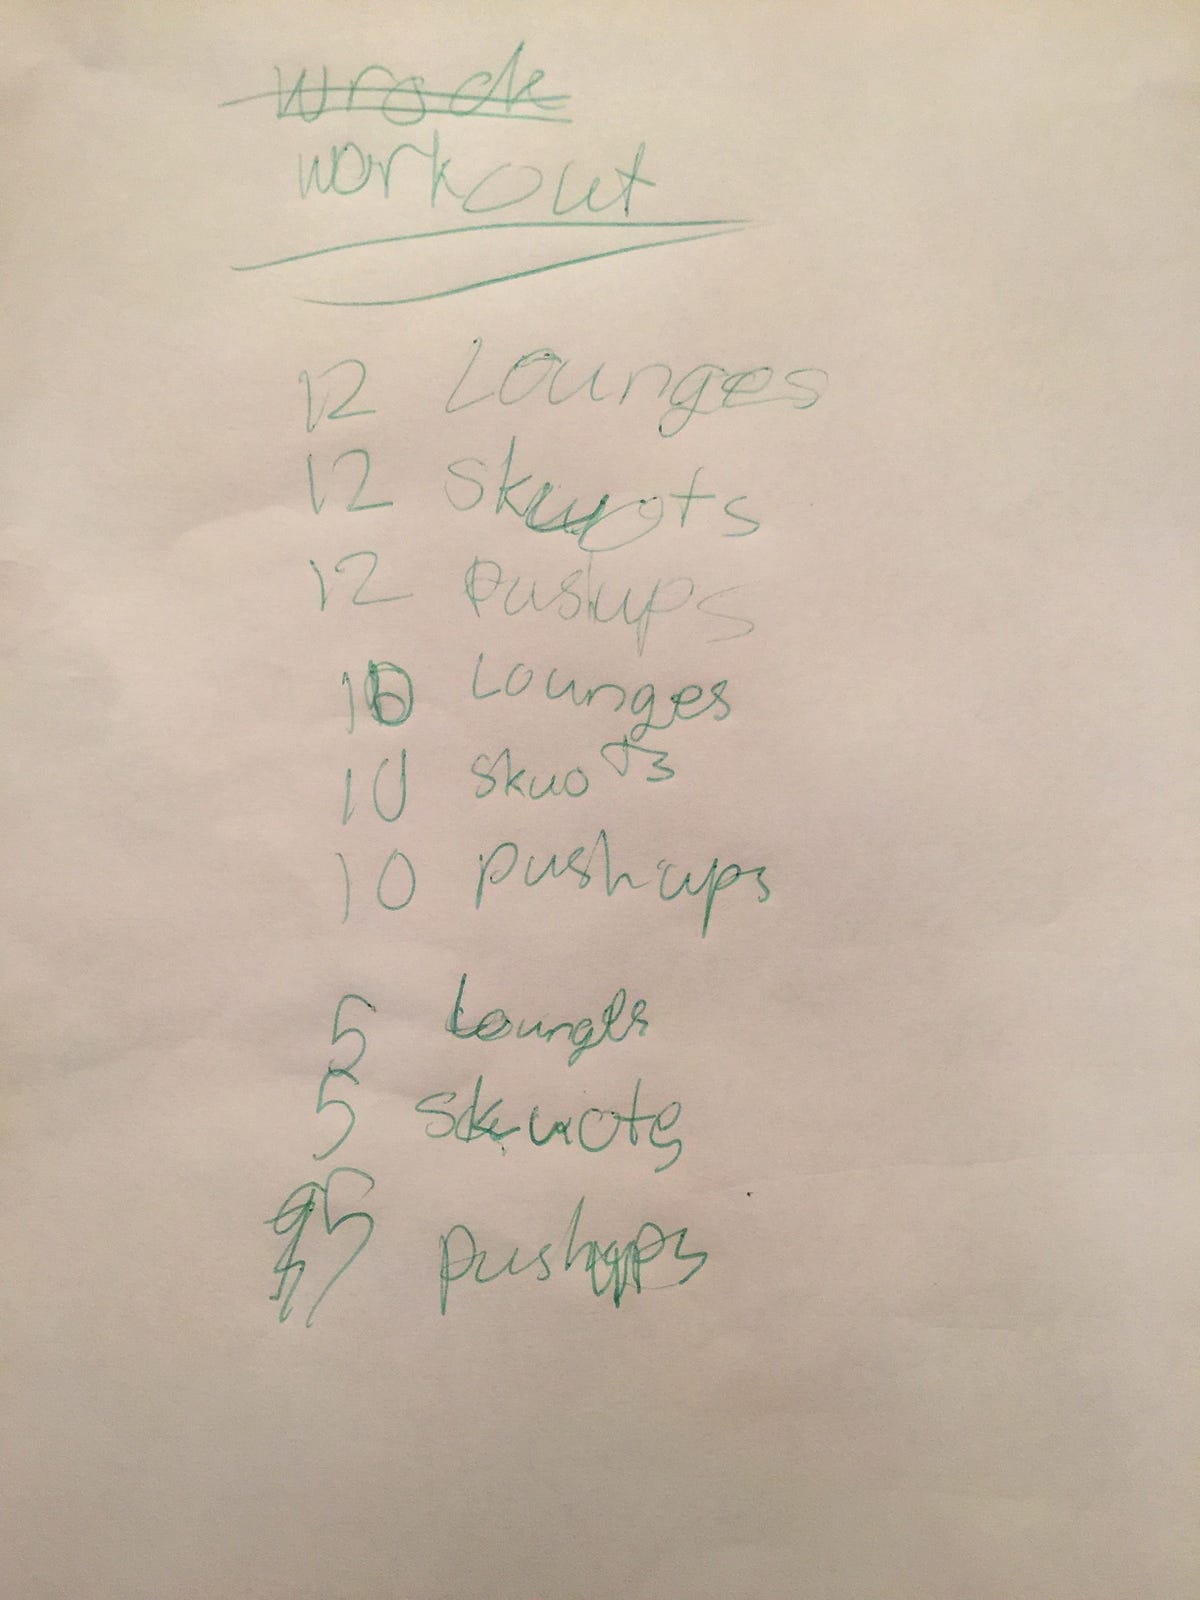 workout
12 Lounges
12 skuots
12 pushups
10 Lounges
10 skuots
10 pushups
5 Lounges
5 skuots
5 pushups